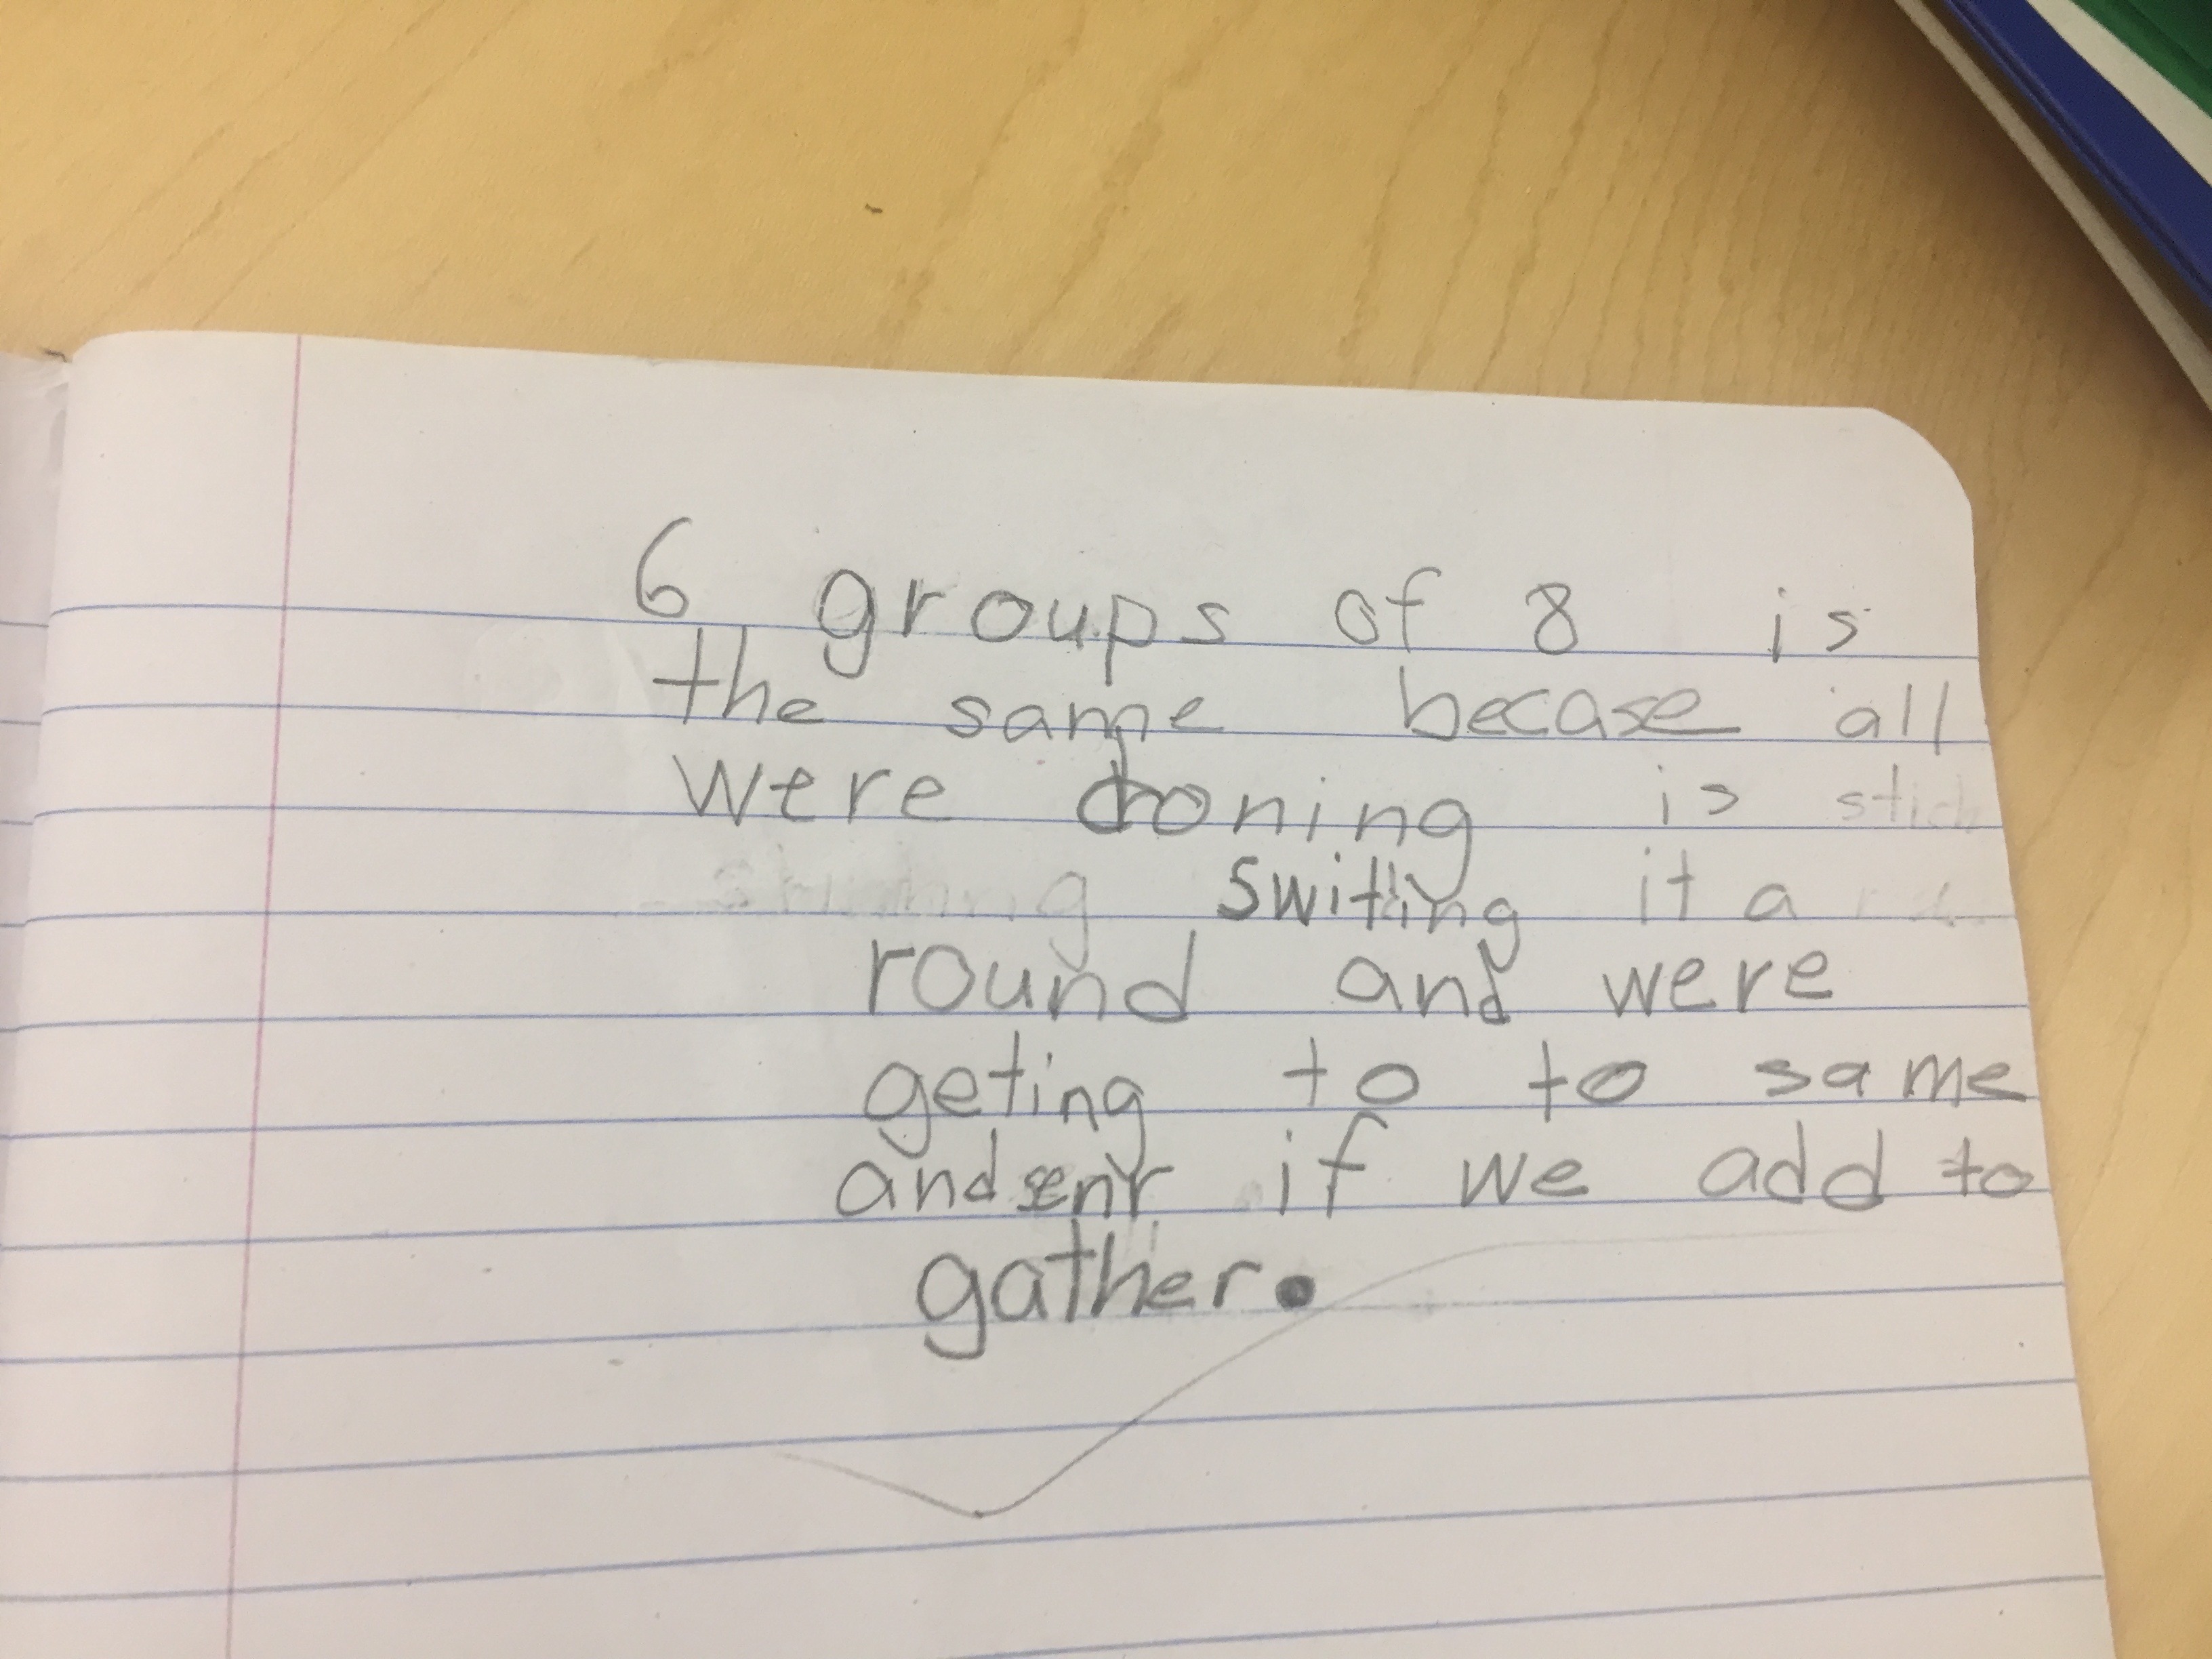 6 groups of 8 is
the same becase all
were doning is
switing it a
round and were
geting to to same
andsenr if we add to
gather.